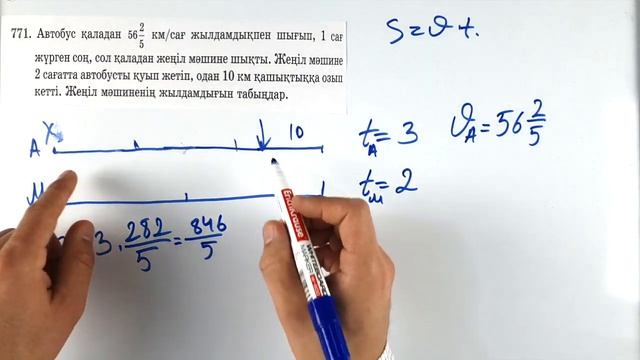 771. Автобус қаладан 56 2/5 км/сағ жылдамдықпен шығып, 1 сағ
жүрген соң, сол қаладан жеңіл мәшине шықты. Жеңіл мәшине
2 сағатта автобусты қуып жетіп, одан 10 км қашықтыққа озып
кетті. Жеңіл мәшиненің жылдамдығын табыңдар.
S = v t.
A X 10
t_A = 3 v_A = 56 2/5
M t_M = 2
3 · 282/5 = 846/5
ErichKrause
WHITEBOARD